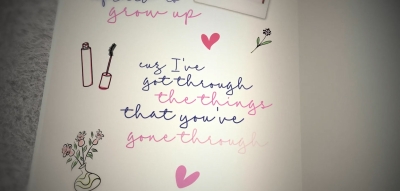 grow up
cuz I've
got through
the things
that you've
gone through